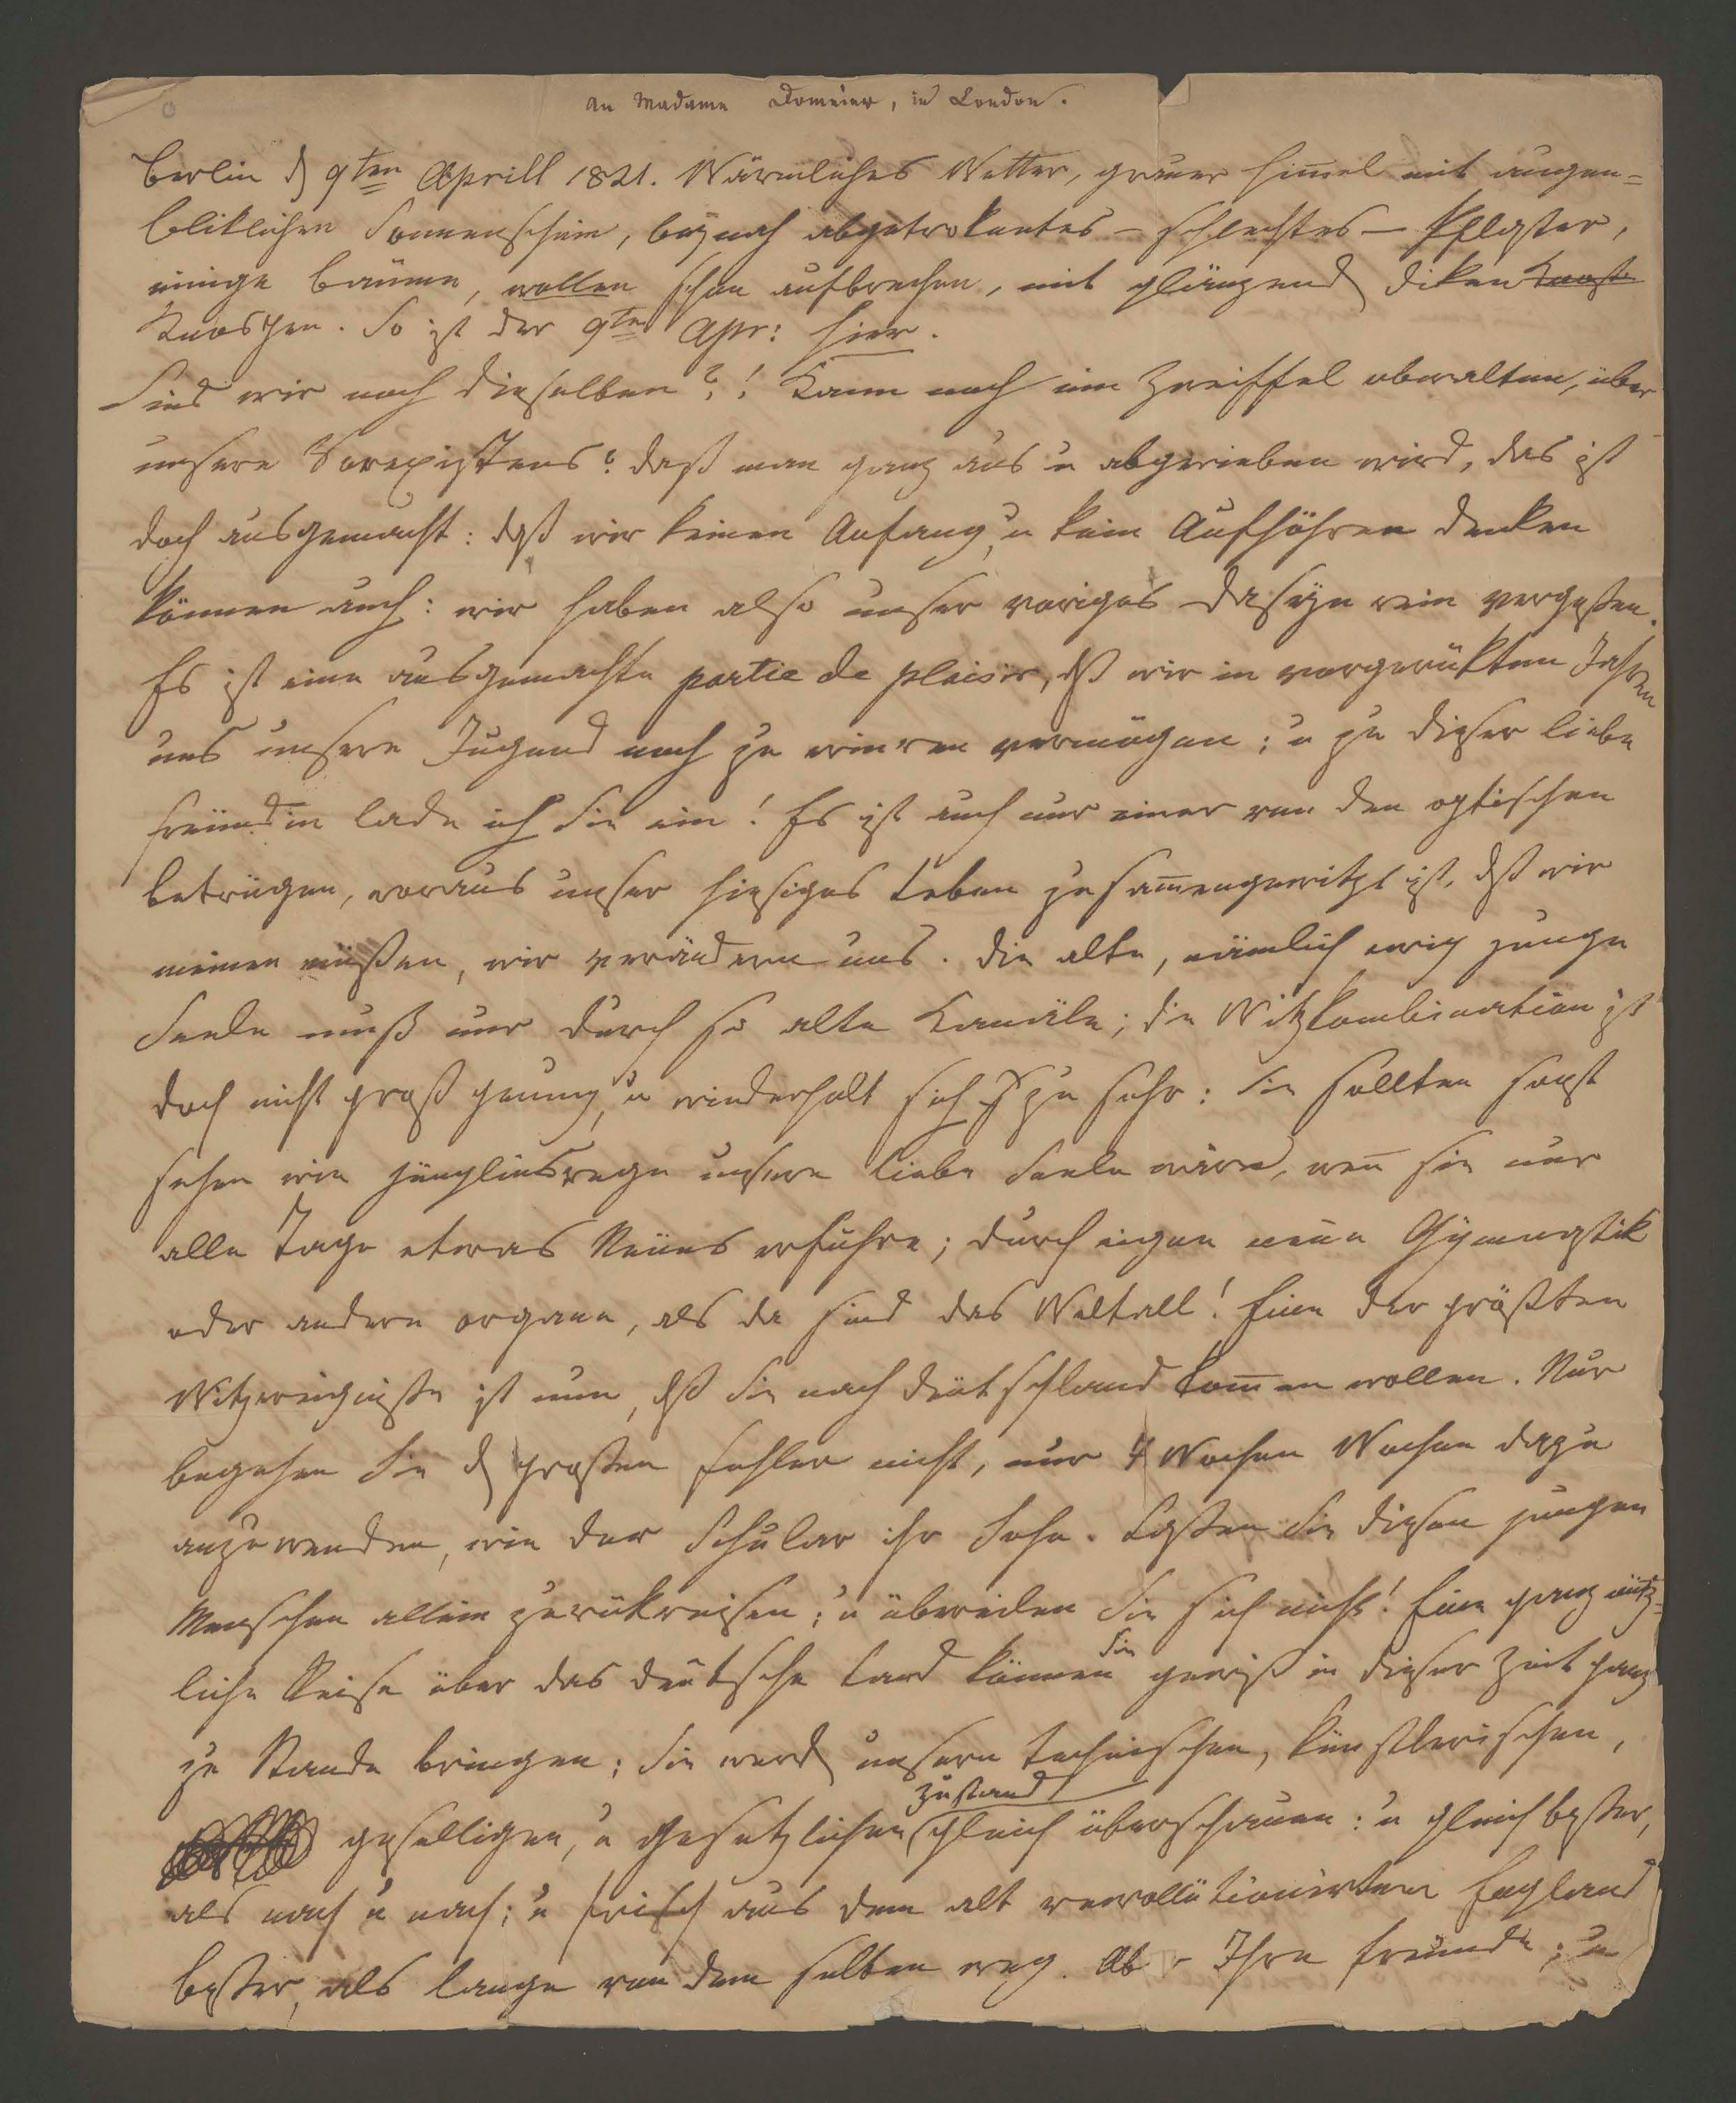 An Madame Domeier, in London.
Berlin d 9ten Aprill 1821. Wärmliches Wetter, grauer Himel mit augen=
bliklichen Sonnenschein, beynah abgetroknetes – schlechtes – Pflaster,
einige Bäume, wollen schon aufbrechen, mit glänzend diken Knosp
Knospen. So ist der 9te Apr: hier.
Sind wir noch dieselben?! Kann noch ein Zweiffel obwalten, über
unsere Vorexistens? daß man ganz aus u abgerieben wird, das ist
doch ausgemacht: daß wir keinen Anfang, u kein Aufhöhren denken
können auch: wir haben also unser voriges Daseyn rein vergeßen.
Es ist eine ausgemachte partie de plaisir, dß wir in vorgerükten Jahren
uns unsere Jugend noch zu erinren vermögen; u zu dieser liebe
Freündin lade ich Sie ein! Es ist auch nur einer von den optischen
Betrügen, woraus unser hiesiges Leben zusamengewitzt ist, dß wir
meinen müßen, wir verändern uns. Die alte, nämlich ewig junge
Seele muß nur durch so alte Kanäle; die Witzkombination ist
doch nicht groß genung, u wiederholt sich zu sehr: Sie sollten sonst
sehen wie jünglinsrege unsere liebe Seele wäre, wen sie nur
alle Tage etwas Neües erführe; durch eigen neüe Gymnastik
oder andere Organe, als da sind das Weltall! Eine der größten
Witzereigniße ist nun, dß Sie nach Deütschland komen wollen. Nur
begehen Sie d großen Fehler nicht, nur 4 Wochen Wochen dazu
anzuwenden, wie der Schuler ihr Sohn. Laßen Sie diesen jungen
Menschen allein zurükreisen; u übereilen Sie sich nicht! Eine ganz nütz=
liche Reise über das deütsche Land können Sie gewiß in dieser Zeit ganz
zu Stande bringen; Sie werd unsern technischen, künstlerischen,
geselligen, u gesetzlichen Zustand gleich überschauen: u gleich beßer,
als nach u nach; u frisch aus dem alt revollutionirten England
beßer, als lange von dem selben weg. Ab r Ihre Freunde; u